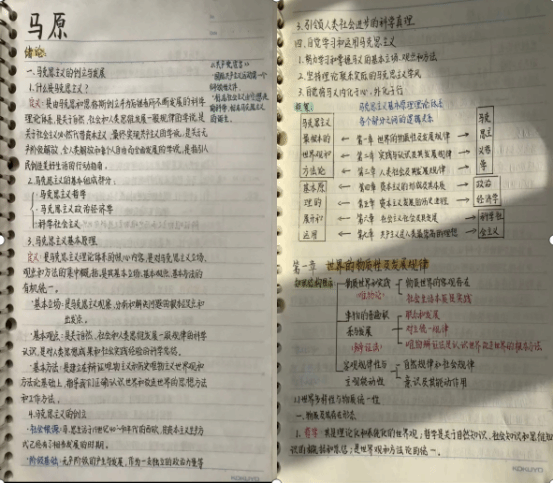 马原
绪论:
一、马克思主义的创立与发展
1.什么是马克思主义?
定义:是由马克思和恩格斯创立并为后继者所不断发展的科学
理论体系,是关于自然、社会和人类思维发展一般规律的学说,是
关于社会主义必然代替资本主义、最终实现共产主义的学说,是关于无
产阶级解放、全人类解放和每个人自由而全面发展的学说,是指引人
民创造美好生活的行动指南。
2.马克思主义的基本组成部分:
马克思主义哲学
马克思主义政治经济学
科学社会主义
3.马克思主义基本原理
定义:是马克思主义理论体系的核心内容,是对马克思主义立场、
观点和方法的集中概括,是其基本立场、基本观点、基本方法的
有机统一。
·基本立场:是马克思主义观察、分析和解决问题的根本立足点和
出发点。
·基本观点:是关于自然、社会和人类思维发展一般规律的科学
认识,是对人类思想成果和社会实践经验的科学总结。
·基本方法:是建立在辩证唯物主义和历史唯物主义世界观和
方法论基础上,指导我们正确认识世界和改造世界的思想方法
和工作方法。
4.马克思主义的创立
·社会根源:
·阶级基础:无产阶级
3.引领人类社会进步的科学真理
四、自觉学习和运用马克思主义
1.努力学习和掌握马义的基本立场、观点和方法
2.坚持理论联系实际的马克思主义学风
3.自觉将马义内化于心、外化于行
马克思主义基本原理理论体系
各个部分之间的逻辑关系
马克思主义
最根本的
世界观和
方法论
第一章 世界的物质性及发展规律
第二章 实践与认识及其发展规律
第三章 人类社会及其发展规律
马克
思主
义哲
学
基本原
理的
展开和
运用
第四章 资本主义的本质及其规律
第五章 资本主义发展的历史进程
第六章 社会主义社会及其发展
第七章 共产主义
政治
经济学
科学社
会主义
第一章 世界的物质性及发展规律
物质世界和实践
物质世界的客观存在
社会生活本质是实践
事物的普遍联
系与发展
联系和发展
对立统一规律
唯物辩证法是认识世界改造世界的根本方法
客观规律性与
主观能动性
自然规律和社会规律
意识及其能动作用
§1.1 世界多样性与物质统一性
一、物质及其存在形态
1.哲学:是理论化和系统化的世界观,哲学是关于自然知识、社会知识和思维知
识的概括和总结;是世界观和方法论的统一。
KOKUYO
KOKUYO